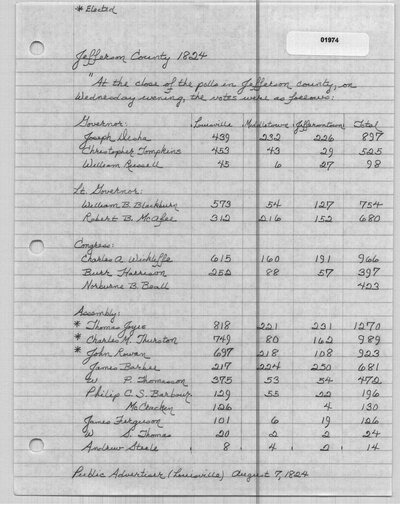 * Elected
01974
Jefferson County 1824
"At the close of the polls in Jefferson county, on
Wednesday evening, the votes were as follows:
Governor: Louisville Middletown Jeffersontown Total
Joseph Desha 439 232 226 897
Christopher Tompkins 453 43 29 525
William Russell 45 6 27 98
Lt. Governor:
William B. Blackburn 573 54 127 754
Robert B. McAfee 312 216 152 680
Congress:
Charles A. Wickliffe 615 160 191 966
Burr Harrison 252 88 57 397
Norburne B. Beall 423
Assembly:
* Thomas Joyes 818 221 231 1270
* Charles M. Thurston 749 80 162 989
* John Rowan 697 218 108 923
James Barbee 217 224 230 681
W P. Thomasson 375 53 54 472
Philip C. S. Barbour 129 55 22 196
McCracken 126 4 130
James Ferguson 101 6 19 126
W S. Thomas 20 2 2 24
Andrew Steele 8 4 2 14
Public Advertiser (Louisville) August 7, 1824